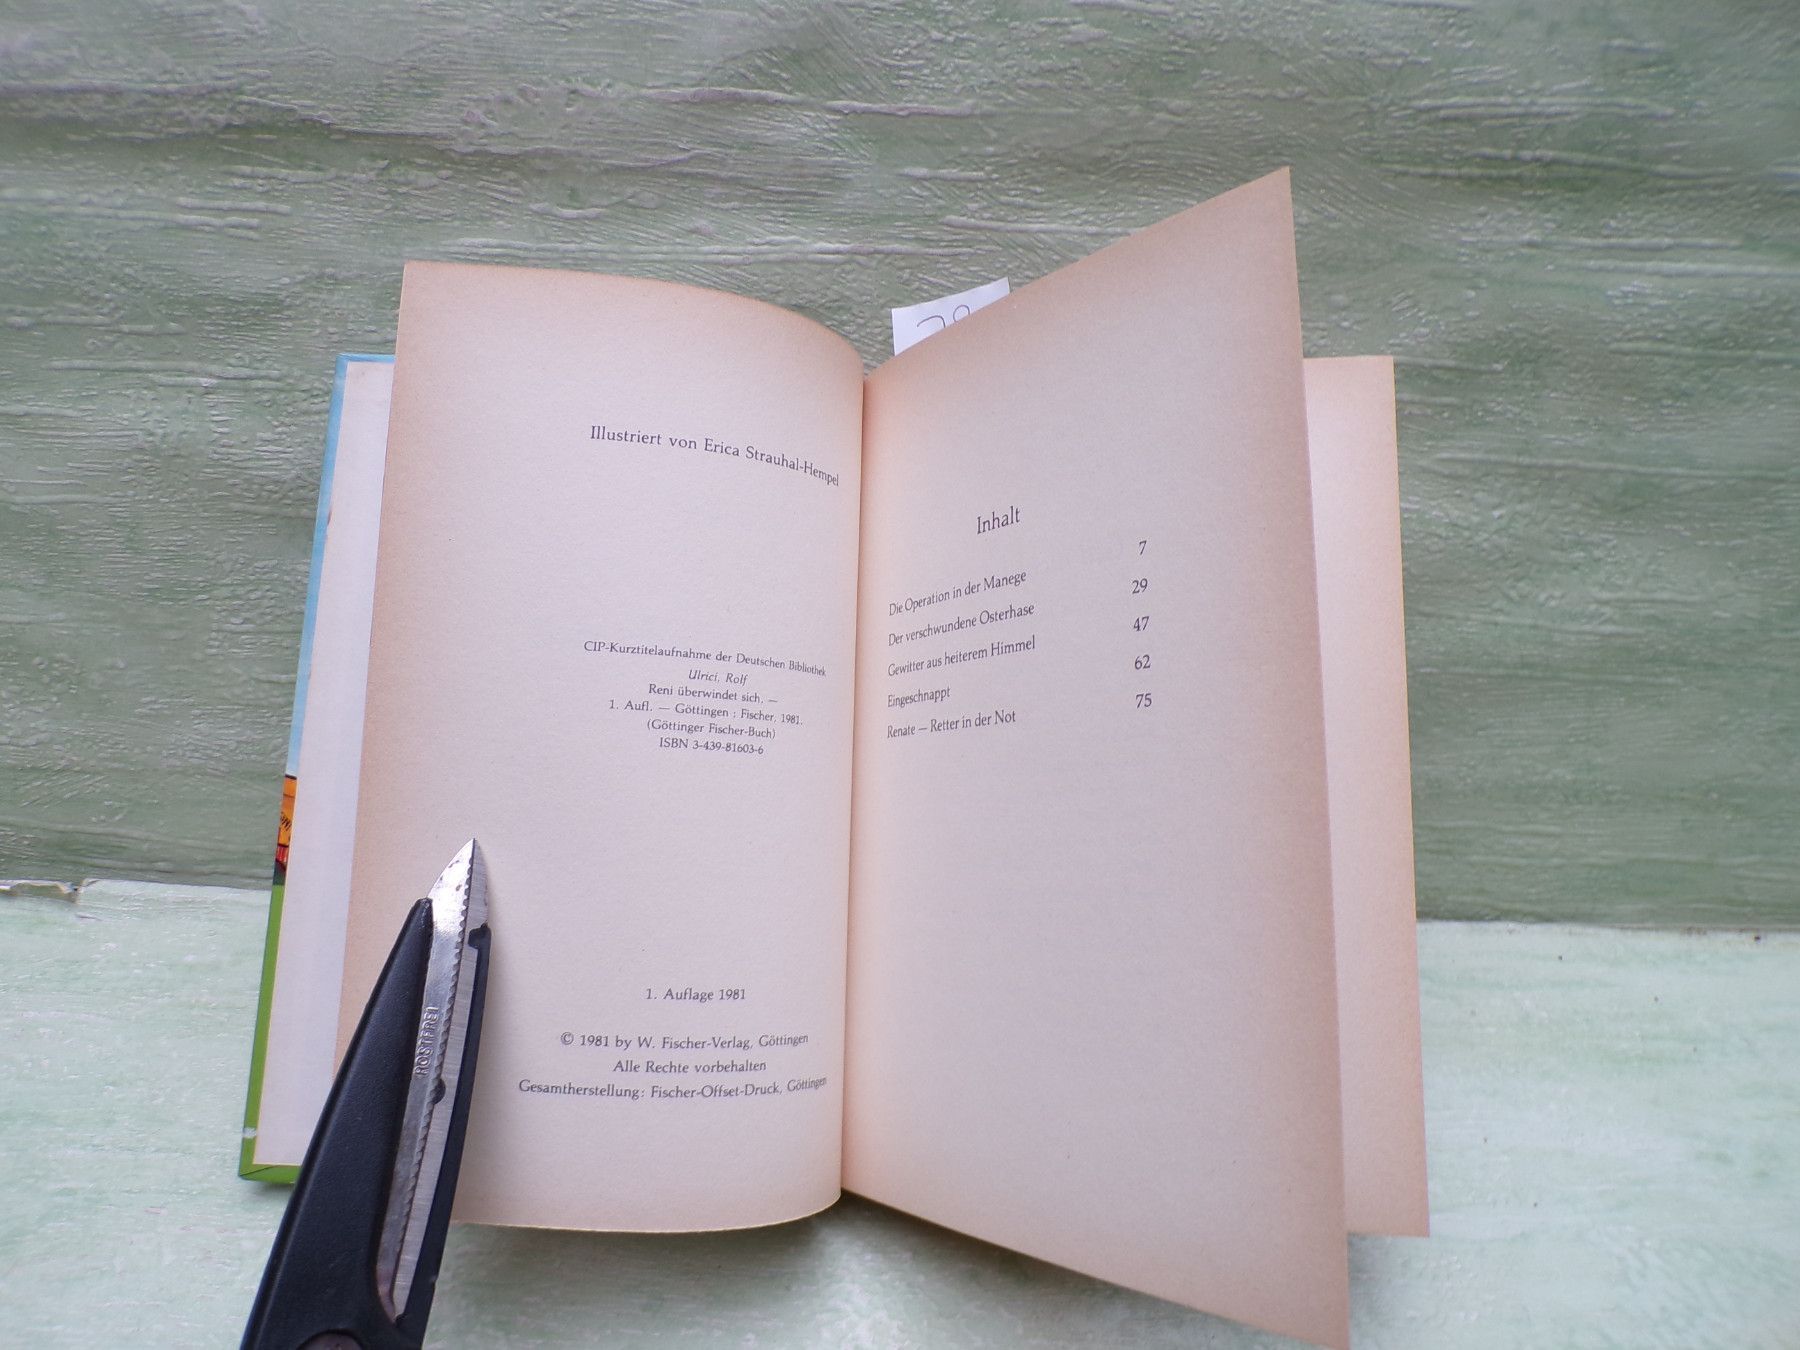 Illustriert von Erica Strauhal-Hempel
CIP-Kurztitelaufnahme der Deutschen Bibliothek
Ulrici, Rolf
Reni überwindet sich. —
1. Aufl. — Göttingen : Fischer, 1981.
(Göttinger Fischer-Buch)
ISBN 3-439-81603-6
1. Auflage 1981
© 1981 by W. Fischer-Verlag, Göttingen
Alle Rechte vorbehalten
Gesamtherstellung: Fischer-Offset-Druck, Göttingen
Inhalt
Die Operation in der Manege 7
Der verschwundene Osterhase 29
Gewitter aus heiterem Himmel 47
Eingeschnappt 62
Renate — Retter in der Not 75
ROSTFREI